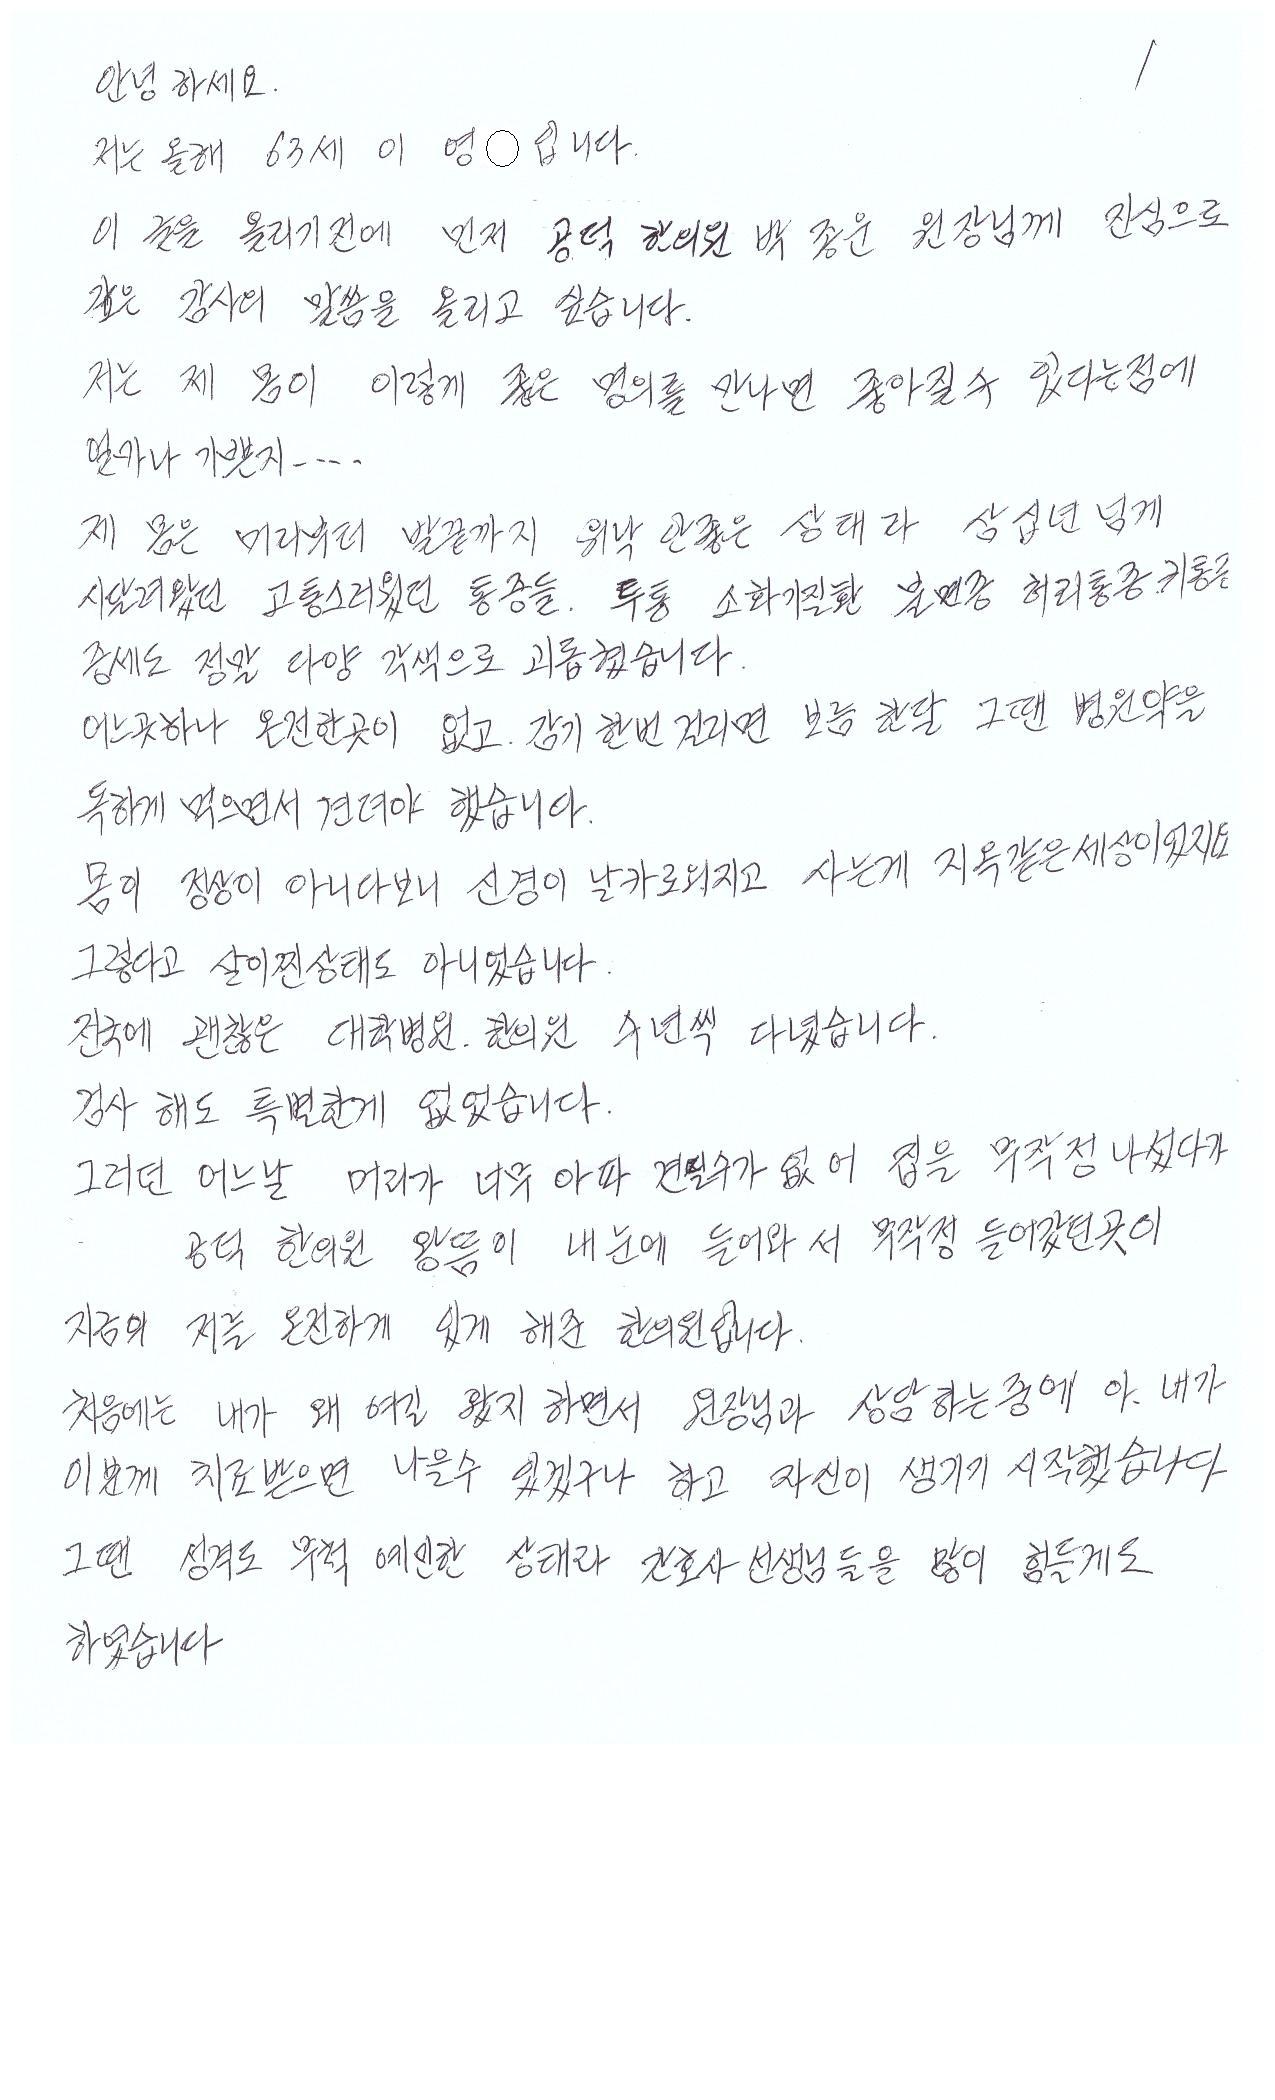 1
안녕 하세요.
저는 올해 63세 이 영○입니다.
이 글을 올리기전에 먼저 공덕 한의원 박 종운 원장님께 진심으로
깊은 감사의 말씀을 올리고 싶습니다.
저는 제 몸이 이렇게 좋은 명의를 만나면 좋아질수 있다는점에
얼마나 기쁜지----
제 몸은 머리부터 발끝까지 워낙 안좋은 상태라 삼십년 넘게
시달려왔던 고통스러웠던 통증들. 두통 소화기질환 불면증 허리통증.귀통증
증세도 정말 다양 각색으로 괴롭혔습니다.
어느곳하나 온전한곳이 없고. 감기 한번 걸리면 보름 한달 그땐 병원약을
독하게 먹으면서 견뎌야 했습니다.
몸이 정상이 아니다보니 신경이 날카로워지고 사는게 지옥같은세상이었지요
그렇다고 살이찐상태도 아니었습니다.
전국에 괜찮은 대학병원. 한의원 수년씩 다녔습니다.
검사 해도 특별한게 없었습니다.
그러던 어느날 머리가 너무 아파 견딜수가 없어 집을 무작정 나섰다가
공덕 한의원 왕뜸이 내눈에 들어와서 무작정 들어갔던곳이
지금의 저를 온전하게 있게 해준 한의원입니다.
처음에는 내가 왜 여길 왔지 하면서 원장님과 상담하는중에 아. 내가
이분께 치료받으면 나을수 있겠구나 하고 자신이 생기기 시작했습니다
그땐 성격도 무척 예민한 상태라 간호사선생님들을 많이 힘들게도
하였습니다